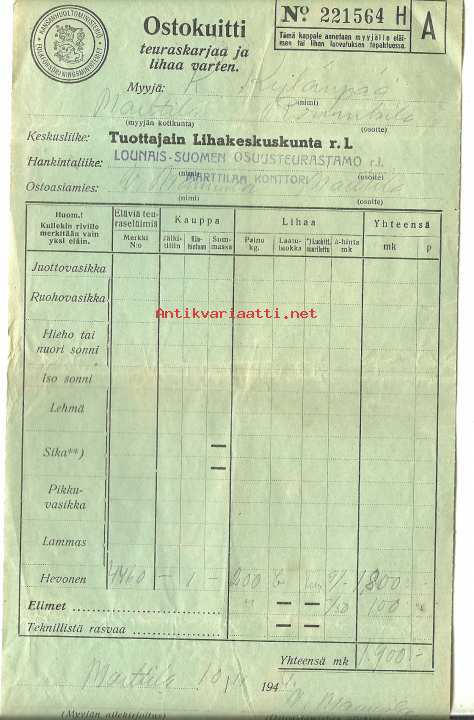 KANSANHUOLTOMINISTERIÖ
FOLKFÖRSÖRJNINGSMINISTERIET
Ostokuitti
teuraskarjaa ja
lihaa varten.
No 221564 H
A
Tämä kappale annetaan myyjälle eläimen tai lihan luovutuksen tapahtuessa.
Myyjä: K
(nimi)
Marttila
(myyjän kotikunta) (osoite)
Keskusliike: Tuottajain Lihakeskuskunta r. l.
Hankintaliike: LOUNAIS-SUOMEN OSUUSTEURASTAMO r.l.
(nimi) MARTTILAN KONTTORI (osoite)
Ostoasiamies: Marttila
(nimi) (osoite)
Huom.! Kullekin riville merkitään vain yksi eläin.
Eläviä teuraseläimiä
Kauppa
Lihaa
Yhteensä
Merkki N:o
Jälkitiliin
Summassa
Paino kg.
Laatuluokka
à-hinta mk
mk
p
Juottovasikka
Ruohovasikka
Hieho tai
nuori sonni
Iso sonni
Lehmä
Sika**)
Pikku-
vasikka
Lammas
Hevonen 1460 – 1 – 200 9/- 1,800:-
Elimet 100
Teknillistä rasvaa
Yhteensä mk 1.900:-
Marttila 10/ 194
(Myyjän allekirjoitus)
Antikvariaatti.net